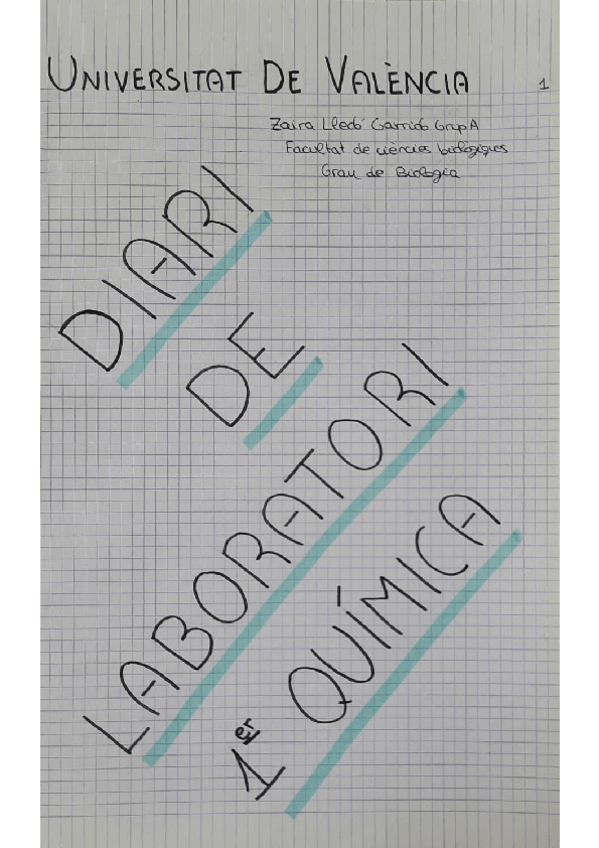 UNIVERSITAT DE VALÈNCIA
1
Zaira Lledó Garrido Grup A
Facultat de ciències biològiques
Grau de Biologia
DIARI
DE
LABORATORI
1er QUÍMICA